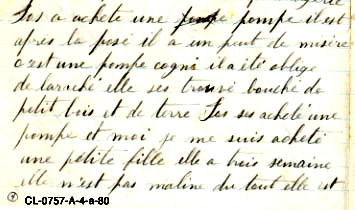 Jos a acheté une pompe il est
après la posé il a un peut de misère
c'est une pompe cogné il a été obligé
de laraché elle ses trouvé bouché de
petit bois et de terre Jos ses acheté une
pompe et moi je me suis acheté
une petite fille elle a trois semaine
elle n'est pas maline du tout elle est
CL-0757-A-4-a-80